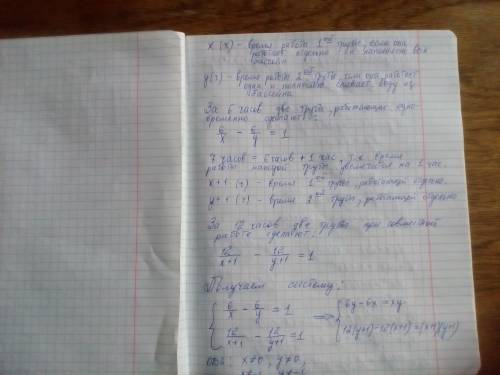 x (ч) – время работы 1ой трубы, если она
работает отдельно и наполняет весь
бассейн
y (ч) – время работы 2ой трубы, если она работает
одна и полностью сливает воду из
бассейна.
За 6 часов две трубы, работающие одно-
временно сделают:
6/x - 6/y = 1
7 часов = 6 часов + 1 час, т.к. время
работы каждой трубы увеличится на 1 час.
x+1 (ч) – время 1ой трубы, работающей отдельно.
y+1 (ч) – время 2ой трубы, работающей отдельно
За 12 часов две трубы при совместной
работе сделают:
12/(x+1) - 12/(y+1) = 1
Получаем систему:
{ 6/x - 6/y = 1 ⟹ { 6y-6x = xy
{ 12/(x+1) - 12/(y+1) = 1 { 12(y+1)-12(x+1)=(x+1)(y+1)
x≠0, y≠0,
x≠-1, y≠-1